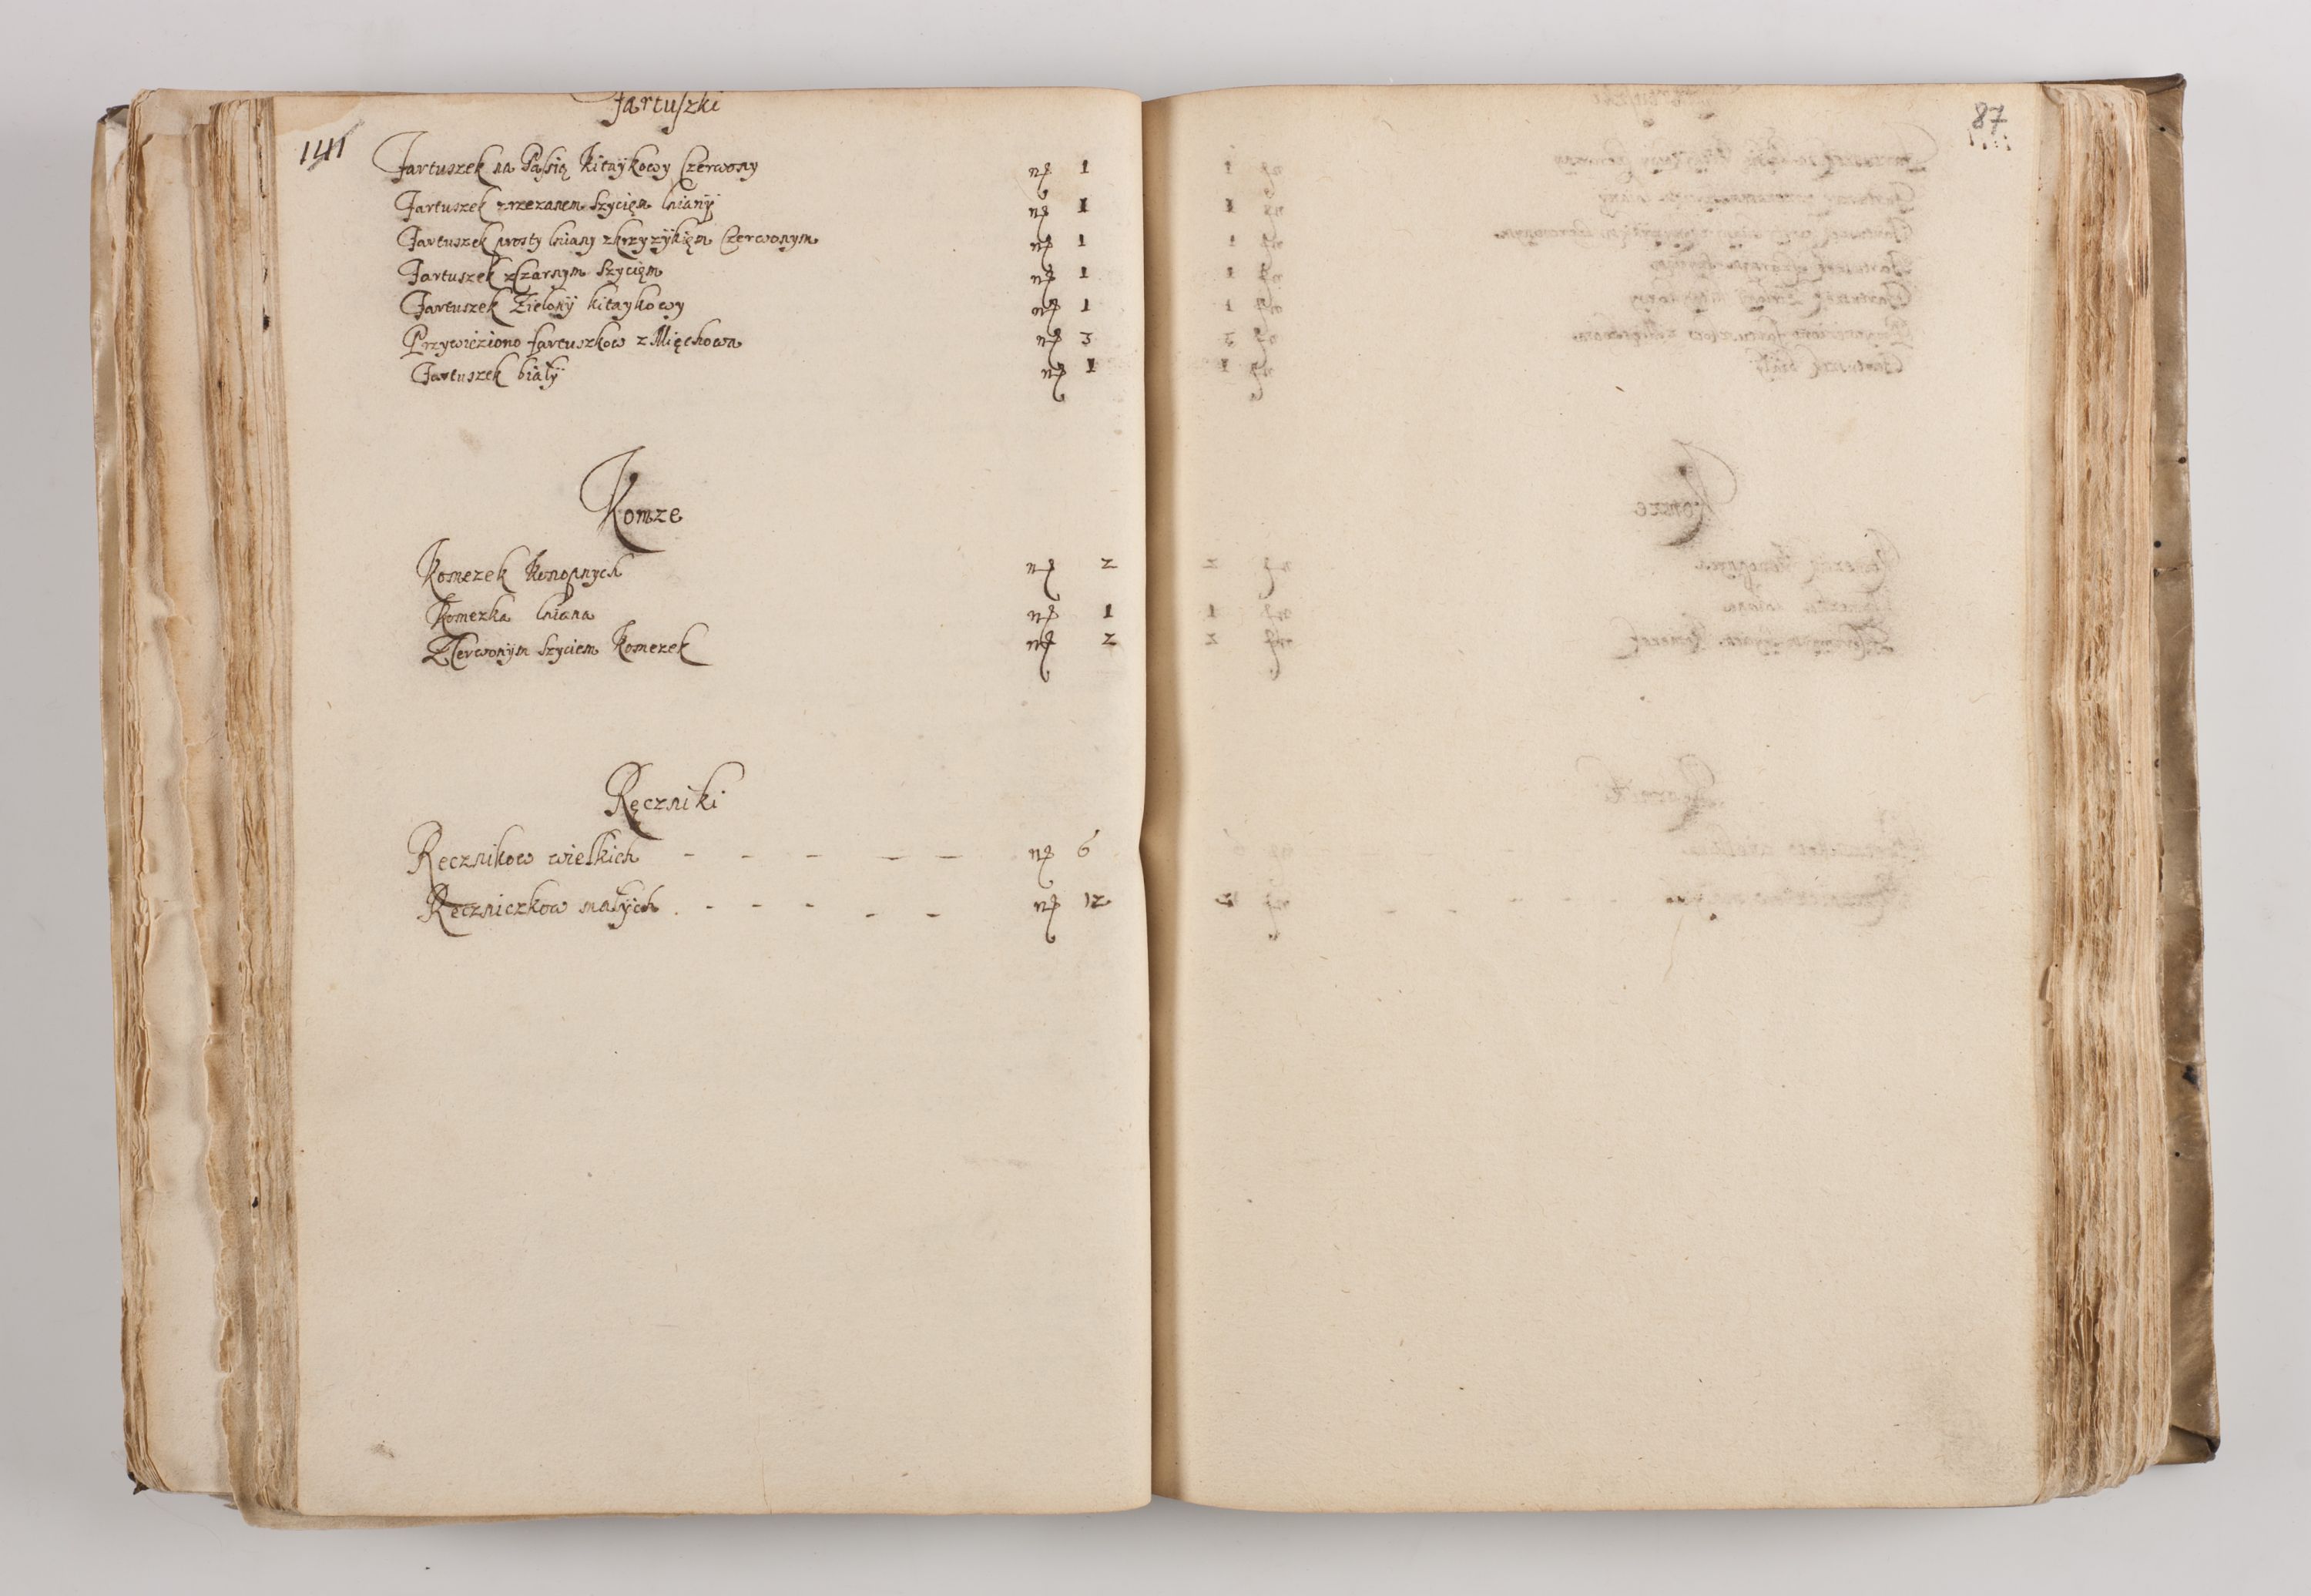 Fartuszki
141
Fartuszek na Passią Kitaykowy Czerwony nº 1
Fartuszek z rzezanem szycięm lniany nº 1
Fartuszek prosty lniany z krzyzykięm Czerwonym nº 1
Fartuszek z Czarnym szycięm nº 1
Fartuszek Zielony kitaykowy nº 1
Przywieziono fartuszkow z Mięchowa nº 3
Fartuszek biały nº 1
Komze
Komezek Konopnych nº 2
Komezka lniana nº 1
Z Czerwonym szyciem Komezek nº 2
Ręczniki
Ręcznikow wielkich - - - - - nº 6
Ręczniczkow małych . - - - - - nº 12
87